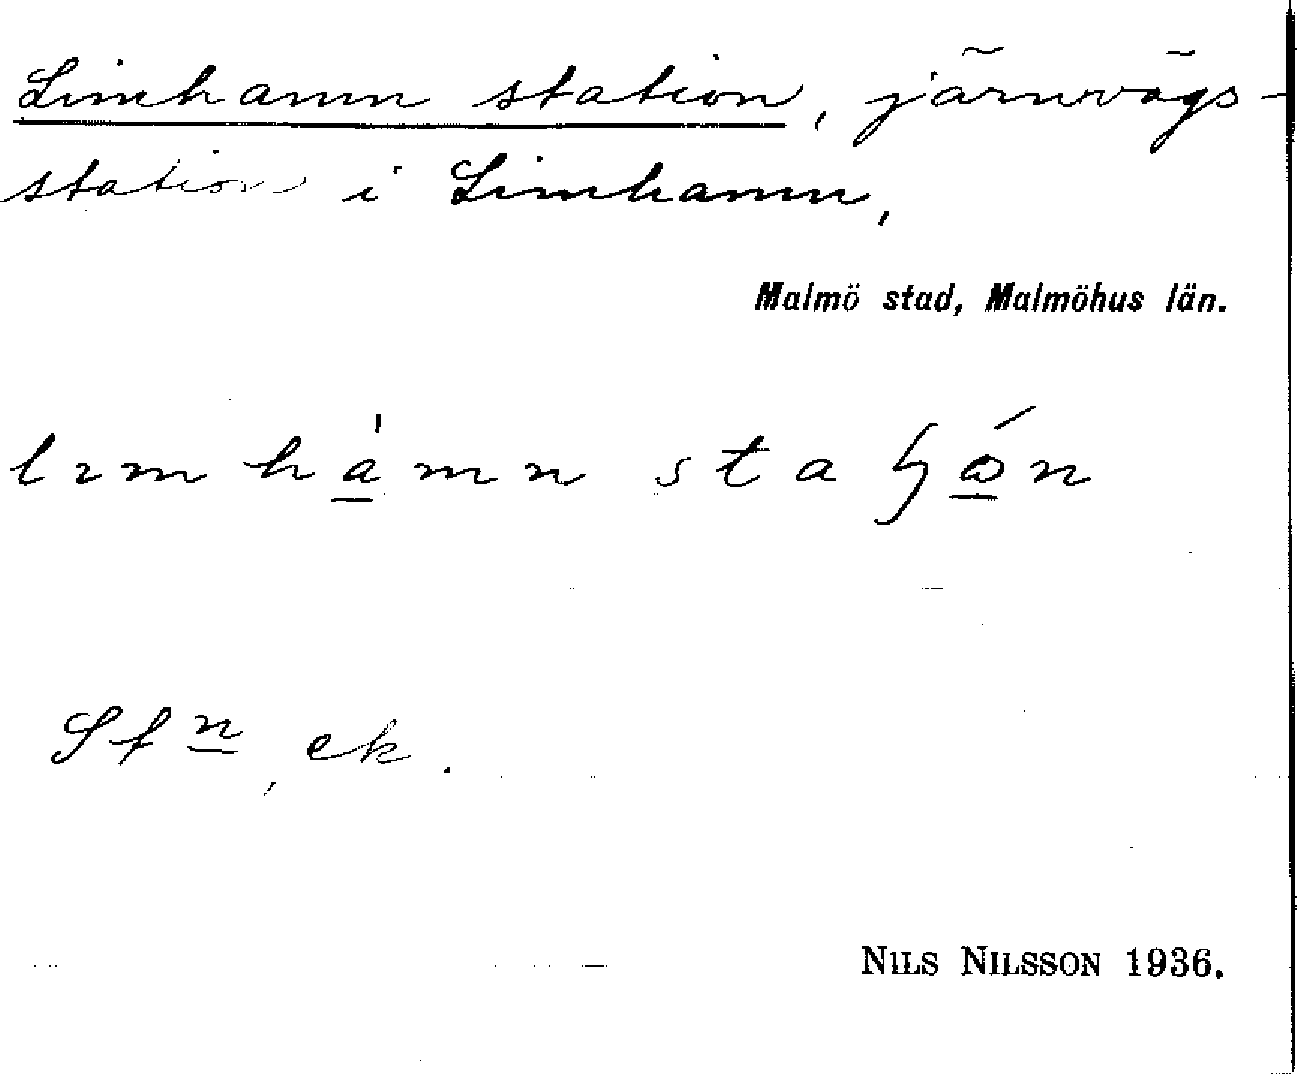 Limhamn station, järnvägs-
station i Limhamn,
Malmö stad, Malmöhus län.
lımha̲̍mn staɧώ̲n
Stn, ek.
NILS NILSSON 1936.